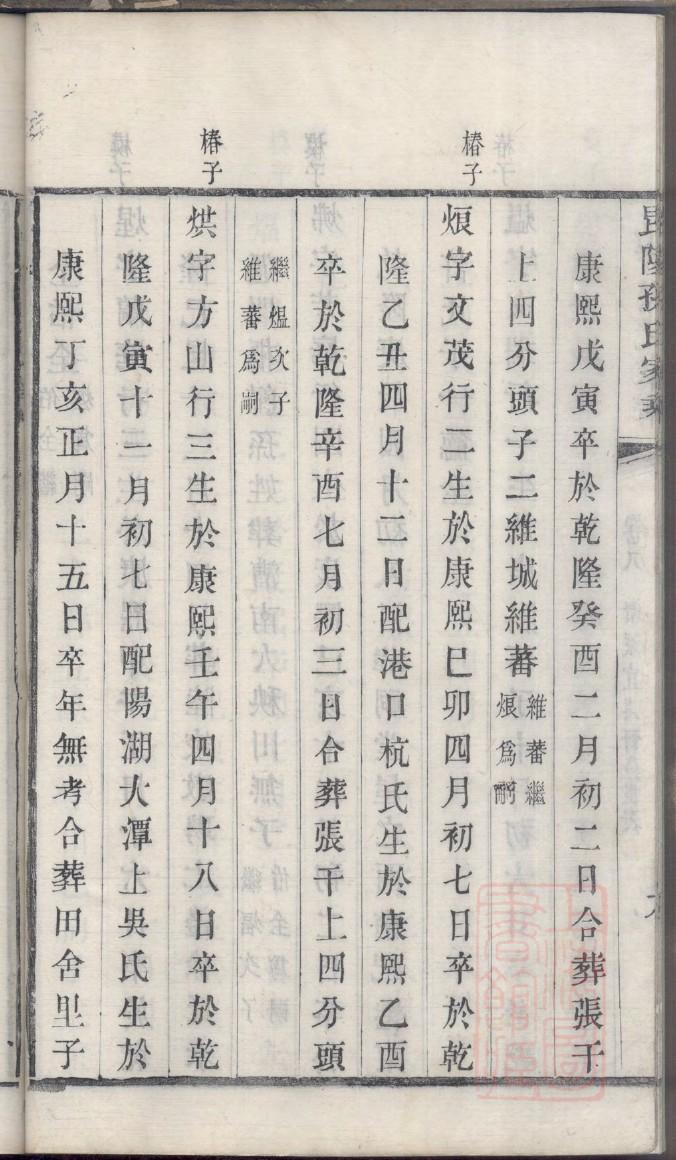 毘陵孫氏家乘
康熙戊寅卒於乾隆癸酉二月初二日合葬張干
上四分頭子二維城維蕃維蕃繼煨爲嗣
椿子
煨字文茂行二生於康熙巳卯四月初七日卒於乾
隆乙丑四月十二日配港口杭氏生於康熙乙酉
卒於乾隆辛酉七月初三日合葬張干上四分頭
繼熅次子維蕃爲嗣
椿子
烘字方山行三生於康熙壬午四月十八日卒於乾
隆戊寅十一月初七日配陽湖大潭上吳氏生於
康熙丁亥正月十五日卒年無考合葬田舍里子